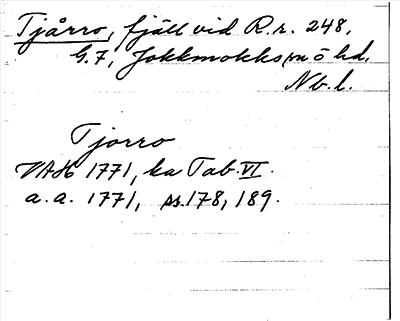 Tjårro, fjäll vid R.r. 248,
G.7, Jokkmokks sn ö hd,
Nb. l.
Tjorro
VAH 1771, ka Tab. VI.
a. a. 1771, ss. 178, 189.